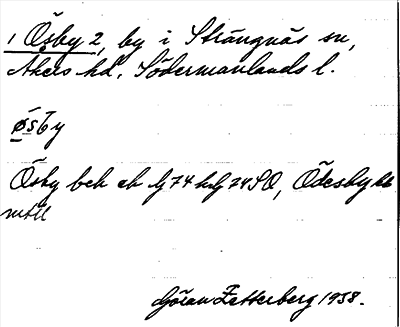 1 Ösby 2, by i Strängnäs sn,
Åkers hd. Södermanlands l.
øsby
Ösby bek ek lj 74 hlj 24 SO, Ödesby bb
intill
Göran Zetterberg 1938.